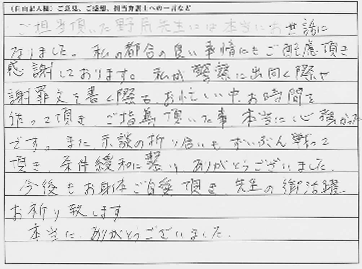 (自由記入欄) ご意見、ご感想、担当弁護士への一言など
ご担当頂いた野尻先生には本当にお世話に
なりました。私の都合の良い事情にもご配慮頂き
感謝しております。私が警察に出向く際や
謝罪文を書く際もお忙しい中お時間を
作って頂きご指導頂いた事本当に心強かった
です。また示談の折り合いもずいぶん戦って
頂き条件緩和に ありがとうございました。
今後もお身体ご自愛頂き先生の御活躍
お祈り致します
本当にありがとうございました。